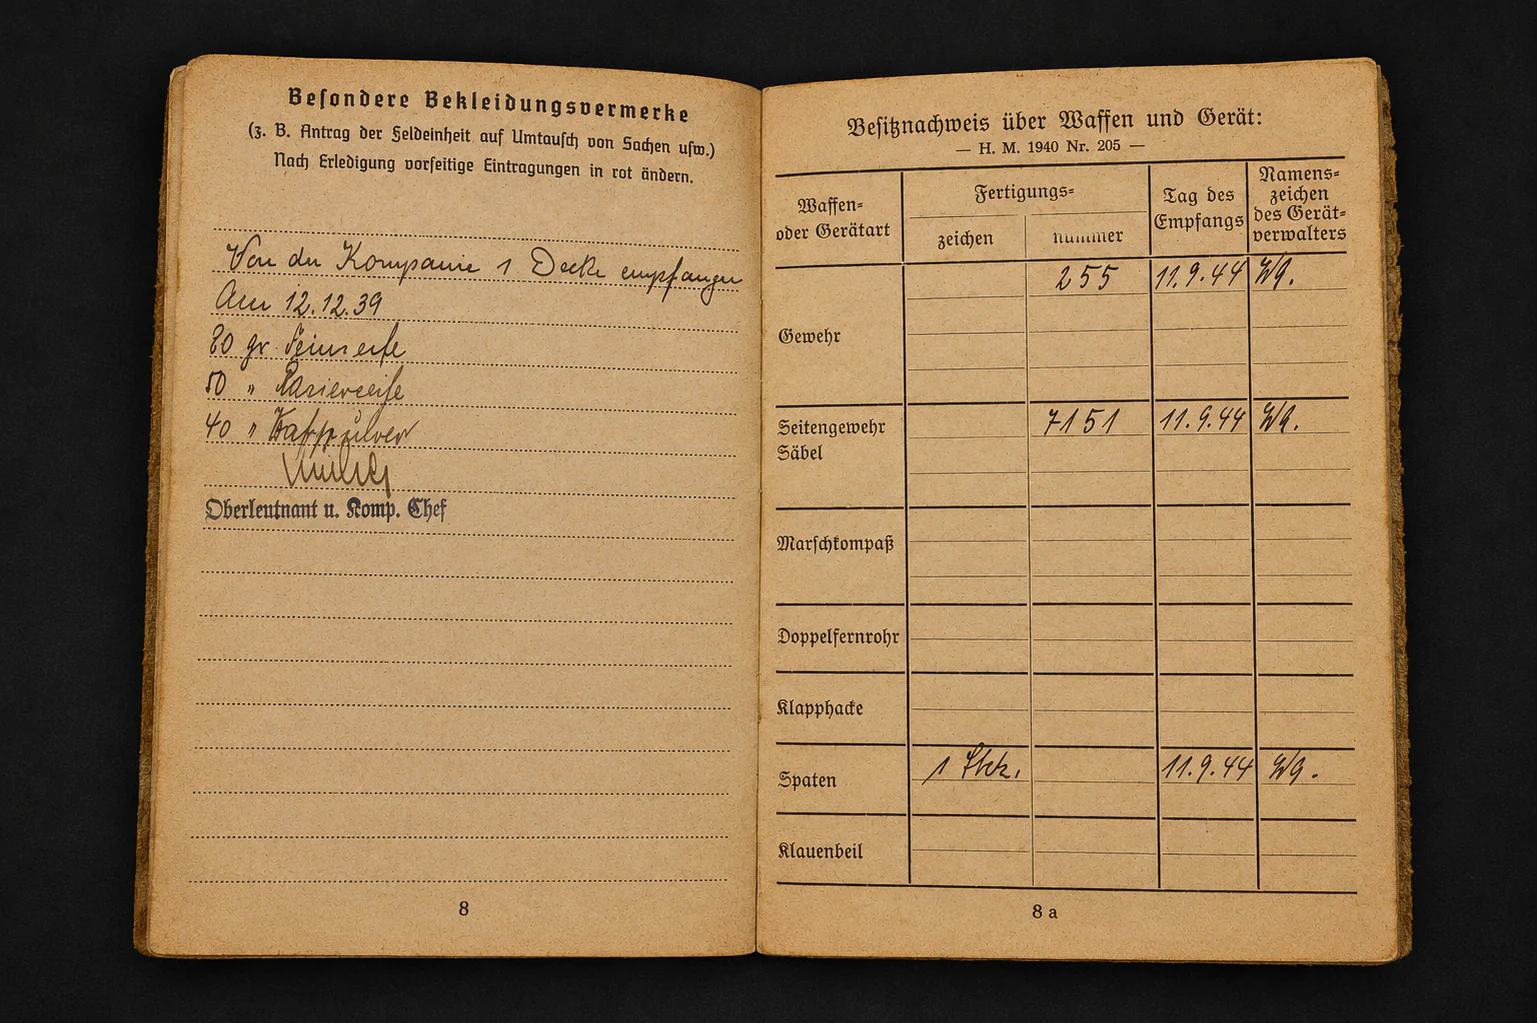 Besondere Bekleidungsvermerke
(z. B. Antrag der Feldeinheit auf Umtausch von Sachen usw.)
Nach Erledigung vorseitige Eintragungen in rot ändern.
Von der Kompanie 1 Decke empfangen
Am 12.12.39
80 gr Feinseife
50 " Rasierseife
40 "
Oberleutnant u. Komp. Chef
8
Besitznachweis über Waffen und Gerät:
— H. M. 1940 Nr. 205 —
Waffen-
oder Gerätart
Fertigungs-
zeichen
nummer
Tag des
Empfangs
Namens-
zeichen
des Gerät-
verwalters
Gewehr 255 11.9.44 Wg.
Seitengewehr 7151 11.9.44 Wg.
Säbel
Marschkompaß
Doppelfernrohr
Klapphacke
Spaten 1 Stck. 11.9.44 Wg.
Klauenbeil
8 a